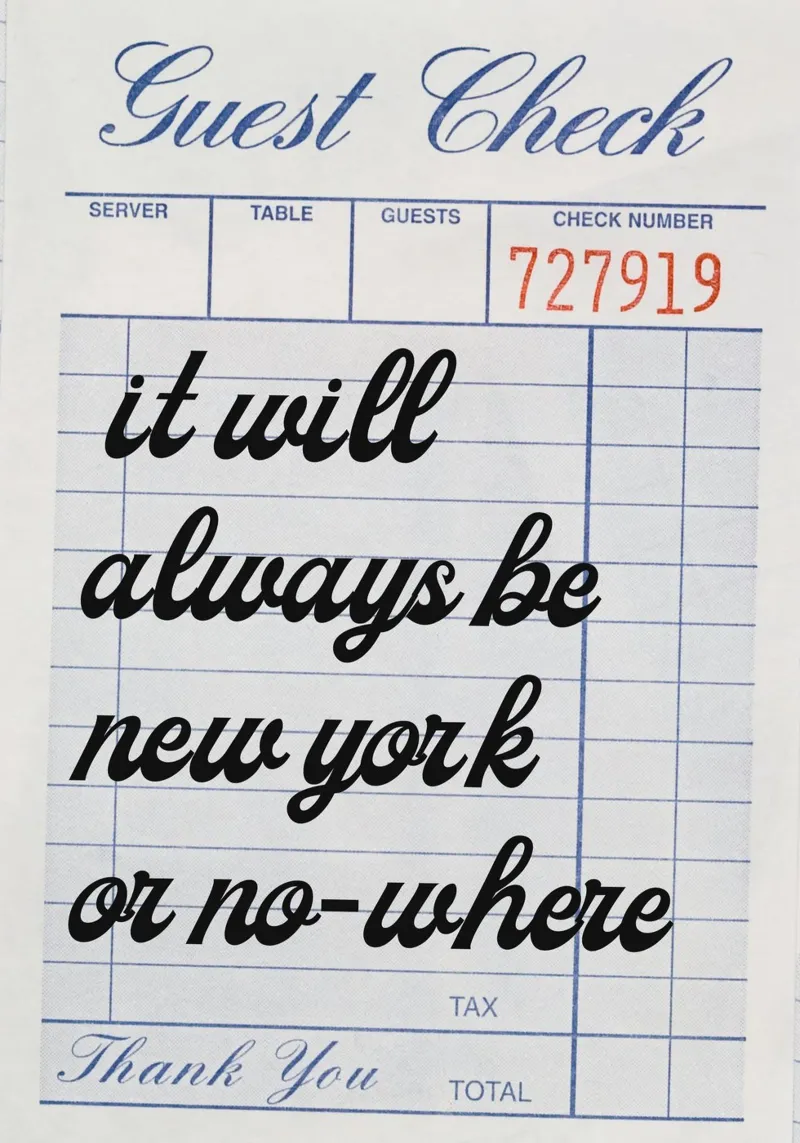 Guest Check
SERVER TABLE GUESTS CHECK NUMBER
727919
it will
always be
new york
or no-where
TAX
Thank You TOTAL